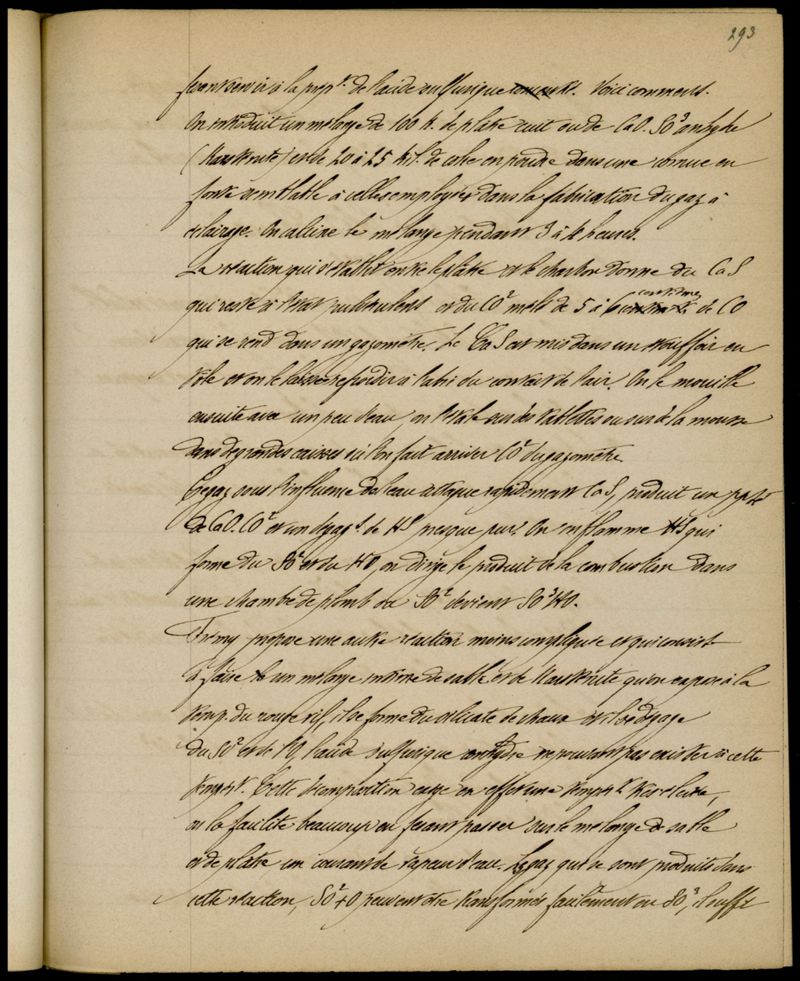 293
servent servir à la prép.t de l'acide sulfurique. Voici comment.
On introduit un mélange de 100 k. de plâtre cuit ou de CaO. SO³ anhydre
(Karsténite) et de 20 à 25 kil. de coke en poudre dans une cornue en
fonte semblable à celles employées dans la fabrication du gaz à
éclairage. On calcine le mélange pendant 3 à 4 heures.
La réaction qui s'établit entre le plâtre et le charbon donne du CaS
qui reste à l'état pulvérulent et du CO² mêlé de 5 à 6 centièmes de CO
qui se rend dans un gazomètre. Le CaS est mis dans un étouffoir en
tôle et on le laisse refroidir à l'abri du contact de l'air. On le mouille
ensuite avec un peu d'eau, on l'étale sur des tablettes ou sur de la mousse
dans de grandes caisses où l'on fait arriver CO² du gazomètre.
Ce gaz sous l'influence de l'eau attaque rapidement CaS, produit un ppté
de CaO. CO² et un dégag.t de HS presque pur. On enflamme HS qui
forme du SO² et du HO, on dirige le produit de la combustion dans
une chambre de plomb où SO² devient SO³HO.
Frémy propose une autre réaction moins compliquée et qui consiste
à faire un mélange intime de sable et de Karsténite qu'on expose à la
temp. du rouge vif, il se forme du silicate de chaux et il se dégage
du SO² et de l'O, l'acide sulfurique anhydre ne pouvant pas exister à cette
temp.re. Cette décomposition exige en effet une temp.re très élevée,
on la facilite beaucoup en faisant passer sur le mélange de sable
et de plâtre un courant de vapeur d'eau. Les gaz qui se sont produits dans
cette réaction, SO² + O peuvent être transformés facilement en SO³, il suffit